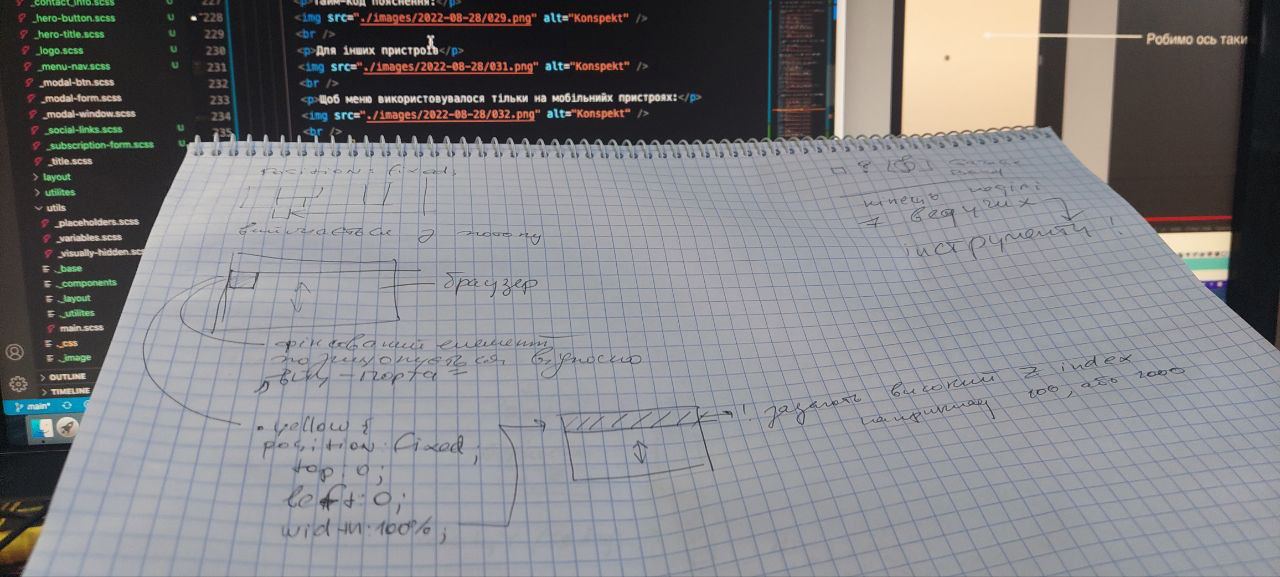 _contact_info.scss U
_hero-button.scss U
_hero-title.scss U
_logo.scss U
_menu-nav.scss U
_modal-btn.scss
_modal-form.scss
_modal-window.scss
_social-links.scss U
_subscription-form.scss U
_title.scss
layout
utilites
utils
_placeholders.scss
_variables.scss
_visually-hidden.sc
_base
_components
_layout
_utilites
main.scss
_css
_image
OUTLINE
TIMELINE
main*
227 <p>Тайм-код пояснення:</p>
228 <img src="./images/2022-08-28/029.png" alt="Konspekt" />
229 <br />
230 <p>Для інших пристроїв</p>
231 <img src="./images/2022-08-28/031.png" alt="Konspekt" />
232 <br />
233 <p>Щоб меню використовувалося тільки на мобільнийх пристроях:</p>
234 <img src="./images/2022-08-28/032.png" alt="Konspekt" />
235 <br />
Робимо ось таки
position: fixed;
з потоку
браузер
фіксований елемент
позиціонується відносно
.yellow {
position: fixed;
top: 0;
left: 0;
width: 100%;
! задавать високий z index
наприклад 100, або 1000
інструменти!